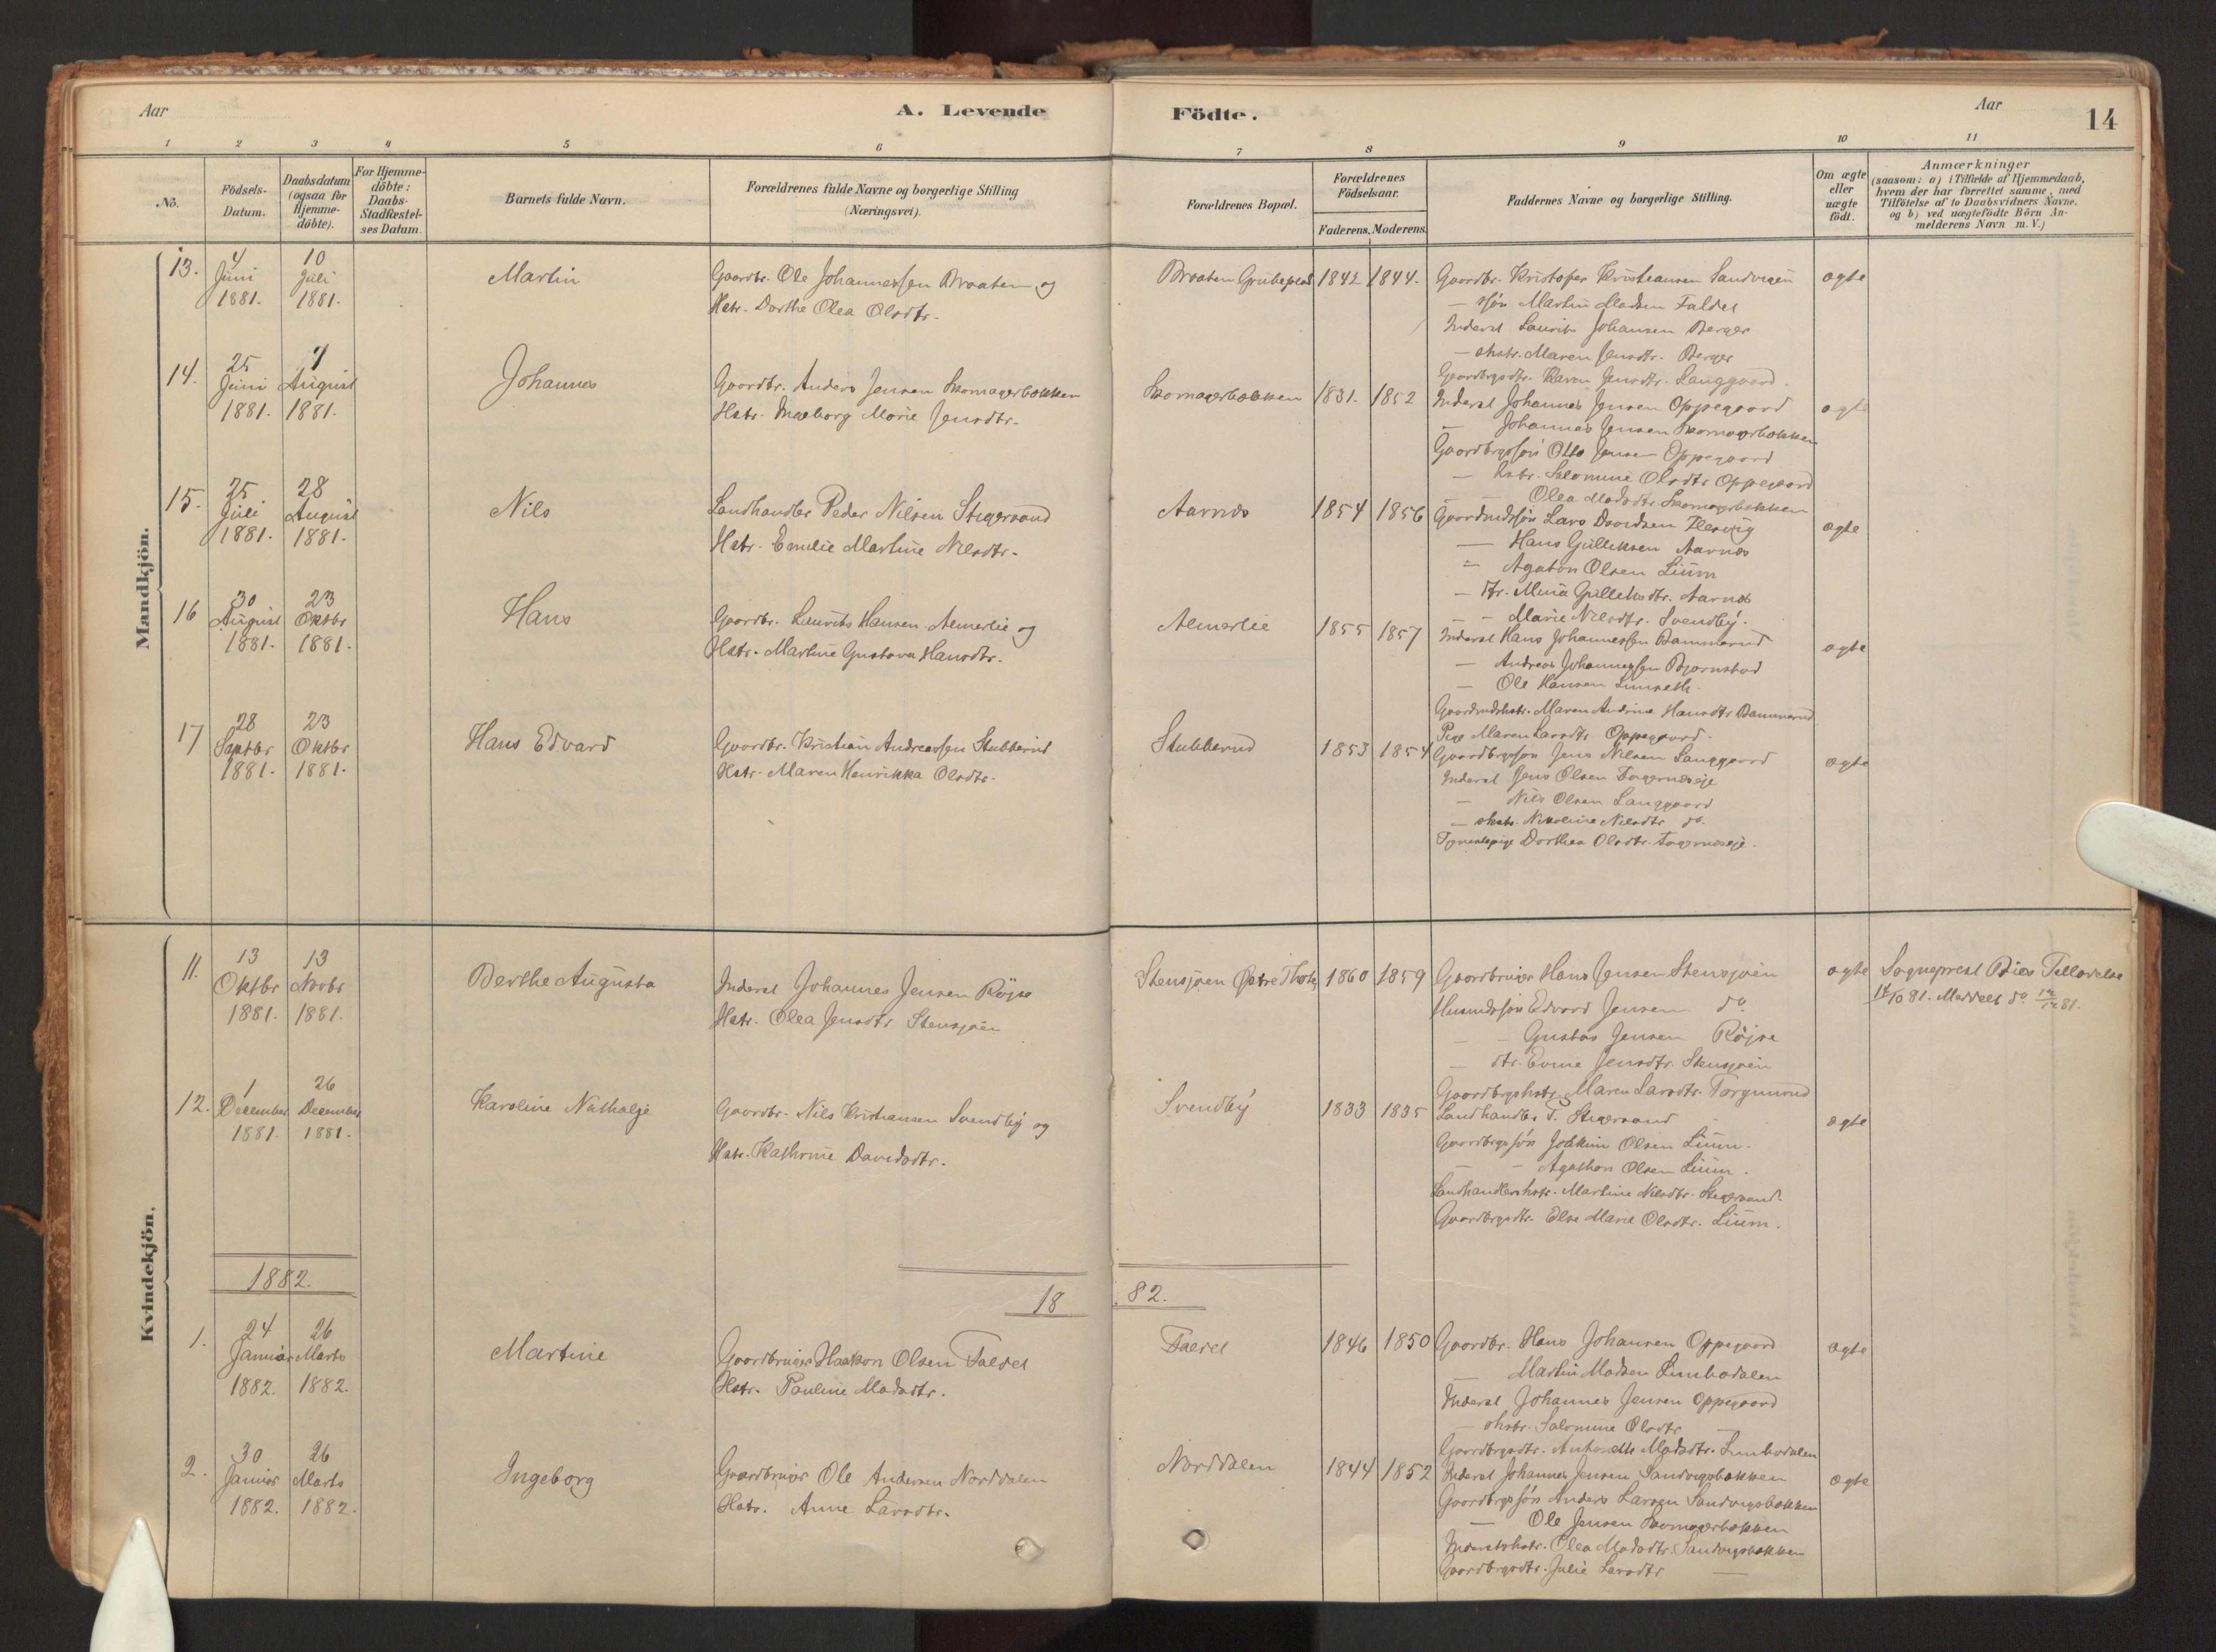 Aar
A. Levende
Födte.
Aar
14
1
2
3
4
5
6
7
8
9
10
11
No.
Födsels-
Datum.
Daabsdatum
(ogsaa for
Hjemme-
döbte).
For Hjemme-
döbte:
Daabs-
Stadfæstel-
ses Datum.
Barnets fulde Navn.
Forældrenes fulde Navne og borgerlige Stilling
(Næringsvei).
Forældrenes Bopæl.
Forældrenes
Födselsaar.
Faderens.
Moderens.
Faddernes Navne og borgerlige Stilling.
Om ægte
eller
uægte
födt.
Anmærkninger
(saasom: a) i Tilfælde af Hjemmedaab,
hvem der har forrettet samme, med
Tilföielse af to Daabsvidners Navne,
og b) ved uægtefödte Börn An-
melderens Navn m. V.)
Mandkjön.
13.
4
Juni
1881.
10
Juli
1881.
Martin
Gaardbr. Ole Johannessen Braaten og
Hstr. Dorthe Olea Olsdtr.
Braaten Grubeplads
1842
1844.
Gaardbr. Kristofer Kristiansen Sandvigen
— søn Martin Madsen Faldet
Inderst Laurits Johansen Berger
— shstr. Maren Jensdtr. Berger
Gaardbrgsdtr. Karen Jensdtr. Langgaard.
ægte
14.
25
Juni
1881.
7
August
1881.
Johannes
Gaardbr. Anders Jensen Skomagerbakken
Hstr. Ingeborg Marie Jensdtr.
Skomagerbakken
1831.
1852
Inderst Johannes Jensen Oppegaard
— Johannes Jensen Skomagerbakken
Gaardbrgssøn Otto Jensen Oppegaard
— hstr. Salomine Olsdtr Oppegaard
— — Olea Madsdtr Skomagerbakken
ægte
15.
25
Juli
1881.
28
August
1881.
Nils
Landhandler Peder Nilsen Stigersand
Hstr. Emilie Martine Nilsdtr.
Aarnæs
1854
1856
Gaardmdssøn Lars Davidsen
— Hans Gulliksen Aarnæs
— Agaton Olsen Lium
— dtr. Mina Gulliksdtr. Aarnæs
— — Marie Nilsdtr. Svendby.
ægte
16
30
August
1881.
23
Oktbr
1881.
Hans
Gaardbr. Laurits Hansen Almerlie og
Hstr. Martine Gustava Hansdtr.
Almerlie
1855
1857
Inderst Hans Johannessen Dammerud
— Andreas Johannessen Bjørnstad
— Ole Hansen
Gaardmdshstr. Maren Andrine Hansdtr Dammerud
Pige Maren Larsdtr. Oppegaard.
ægte
17
28
Septbr
1881.
23
Oktbr
1881.
Hans Edvard
Gaardbr. Kristian Andreassen Stubberud
Hstr. Maren Henrikka Olsdtr.
Stubberud
1853
1854
Gaardbrgssøn Jens Nilsen Langgaard
Inderst Jens Olsen Fagernæseje
— Nils Olsen Langgaard
— shstr. Nikoline Nilsdtr do.
Dorthea Olsdtr. Fagernæseje.
ægte
Kvindekjön.
11.
13
Oktbr
1881.
13
Novbr
1881.
Berthe Augusta
Inderst Johannes Jensen Röjse
Hstr. Olea Jensdtr Stensjøen
Stensjøen Østre Thoten
1860
1859
Gaardbruger Hans Jensen Stensjøen
Husmdssøn Edvard Jensen do
— — Gustav Jensen Röjse
— dtr. Jensdtr. Stensjøen
Gaardbrgshstr. Maren Larsdtr. Torgunrud
ægte
Sogneprest Tilladelse
81. Meddelt do 81.
12.
1
December
1881.
26
December
1881.
Karoline Nathalje
Gaardbr. Nils Kristiansen Svendby og
Hstr. Kathrine Davidsdtr.
Svendby
1833
1835
Landhandler P. Stigersand
Gaardbrgssøn Joakim Olsen Lium.
— — Agathon Olsen Lium.
Landhandlerhstr. Martine Nilsdtr. Stigersand.
Gaardbrgsdtr. Else Marie Olsdtr. Lium.
ægte
1882.
18
82.
1.
24
Januar
1882.
26
Marts
1882.
Martine
Gaardbruger Haakon Olsen Faldet
Hstr. Pauline Madsdtr.
Faldet
1846
1850
Gaardbr. Hans Johansen Oppegaard
— Martin Madsen Limbodalen
Inderst Johannes Jensen Oppegaard
— shstr. Salomine Olsdtr
Gaardbrgsdtr. Antonette Madsdtr. Limbodalen
ægte
2.
30
Januar
1882.
26
Marts
1882.
Ingeborg
Gaardbruger Ole Andersen Norddalen
Hstr. Anne Larsdtr.
Norddalen
1844
1852
Inderst Johannes Jensen Sandvigsbakken
Gaardbrgssøn Anders Larsen Sandvigsbakken
— Ole Jensen Skomagerbakken
Inderstshstr. Olea Madsdtr. Sandvigsbakken
Gaardbrgsdtr. Julie Larsdtr —
ægte